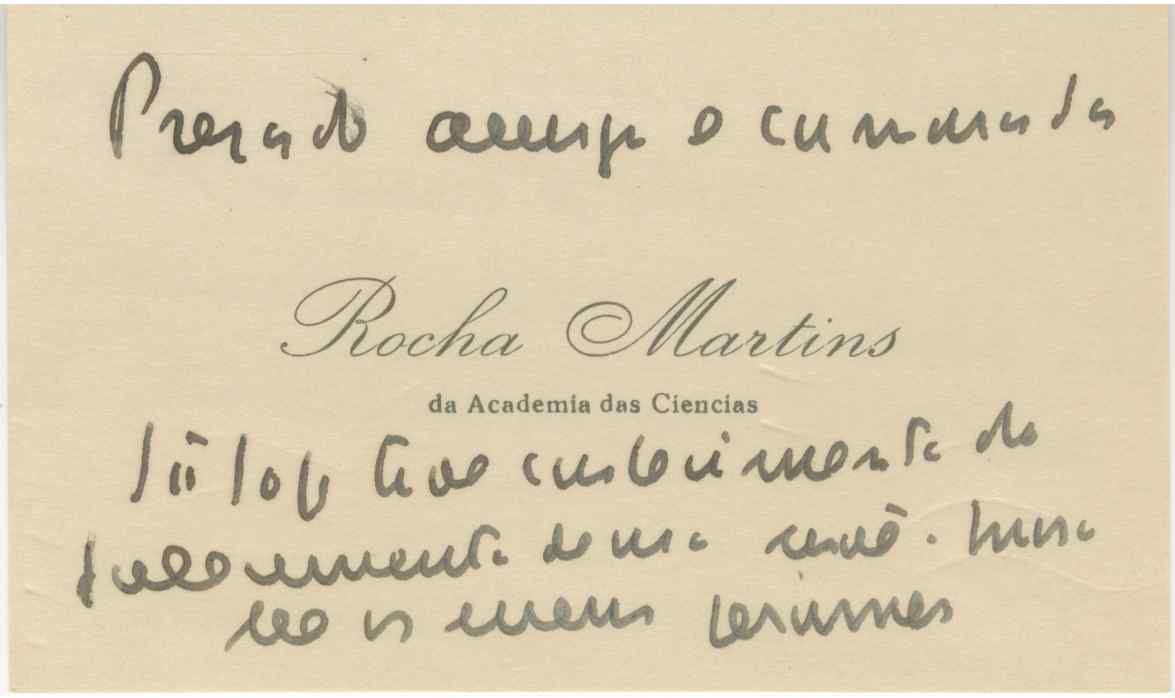 Prezado amigo e camarada
Rocha Martins
da Academia das Ciencias
Só hoje tive conhecimento do
fallecimento de sua
os meus pesames